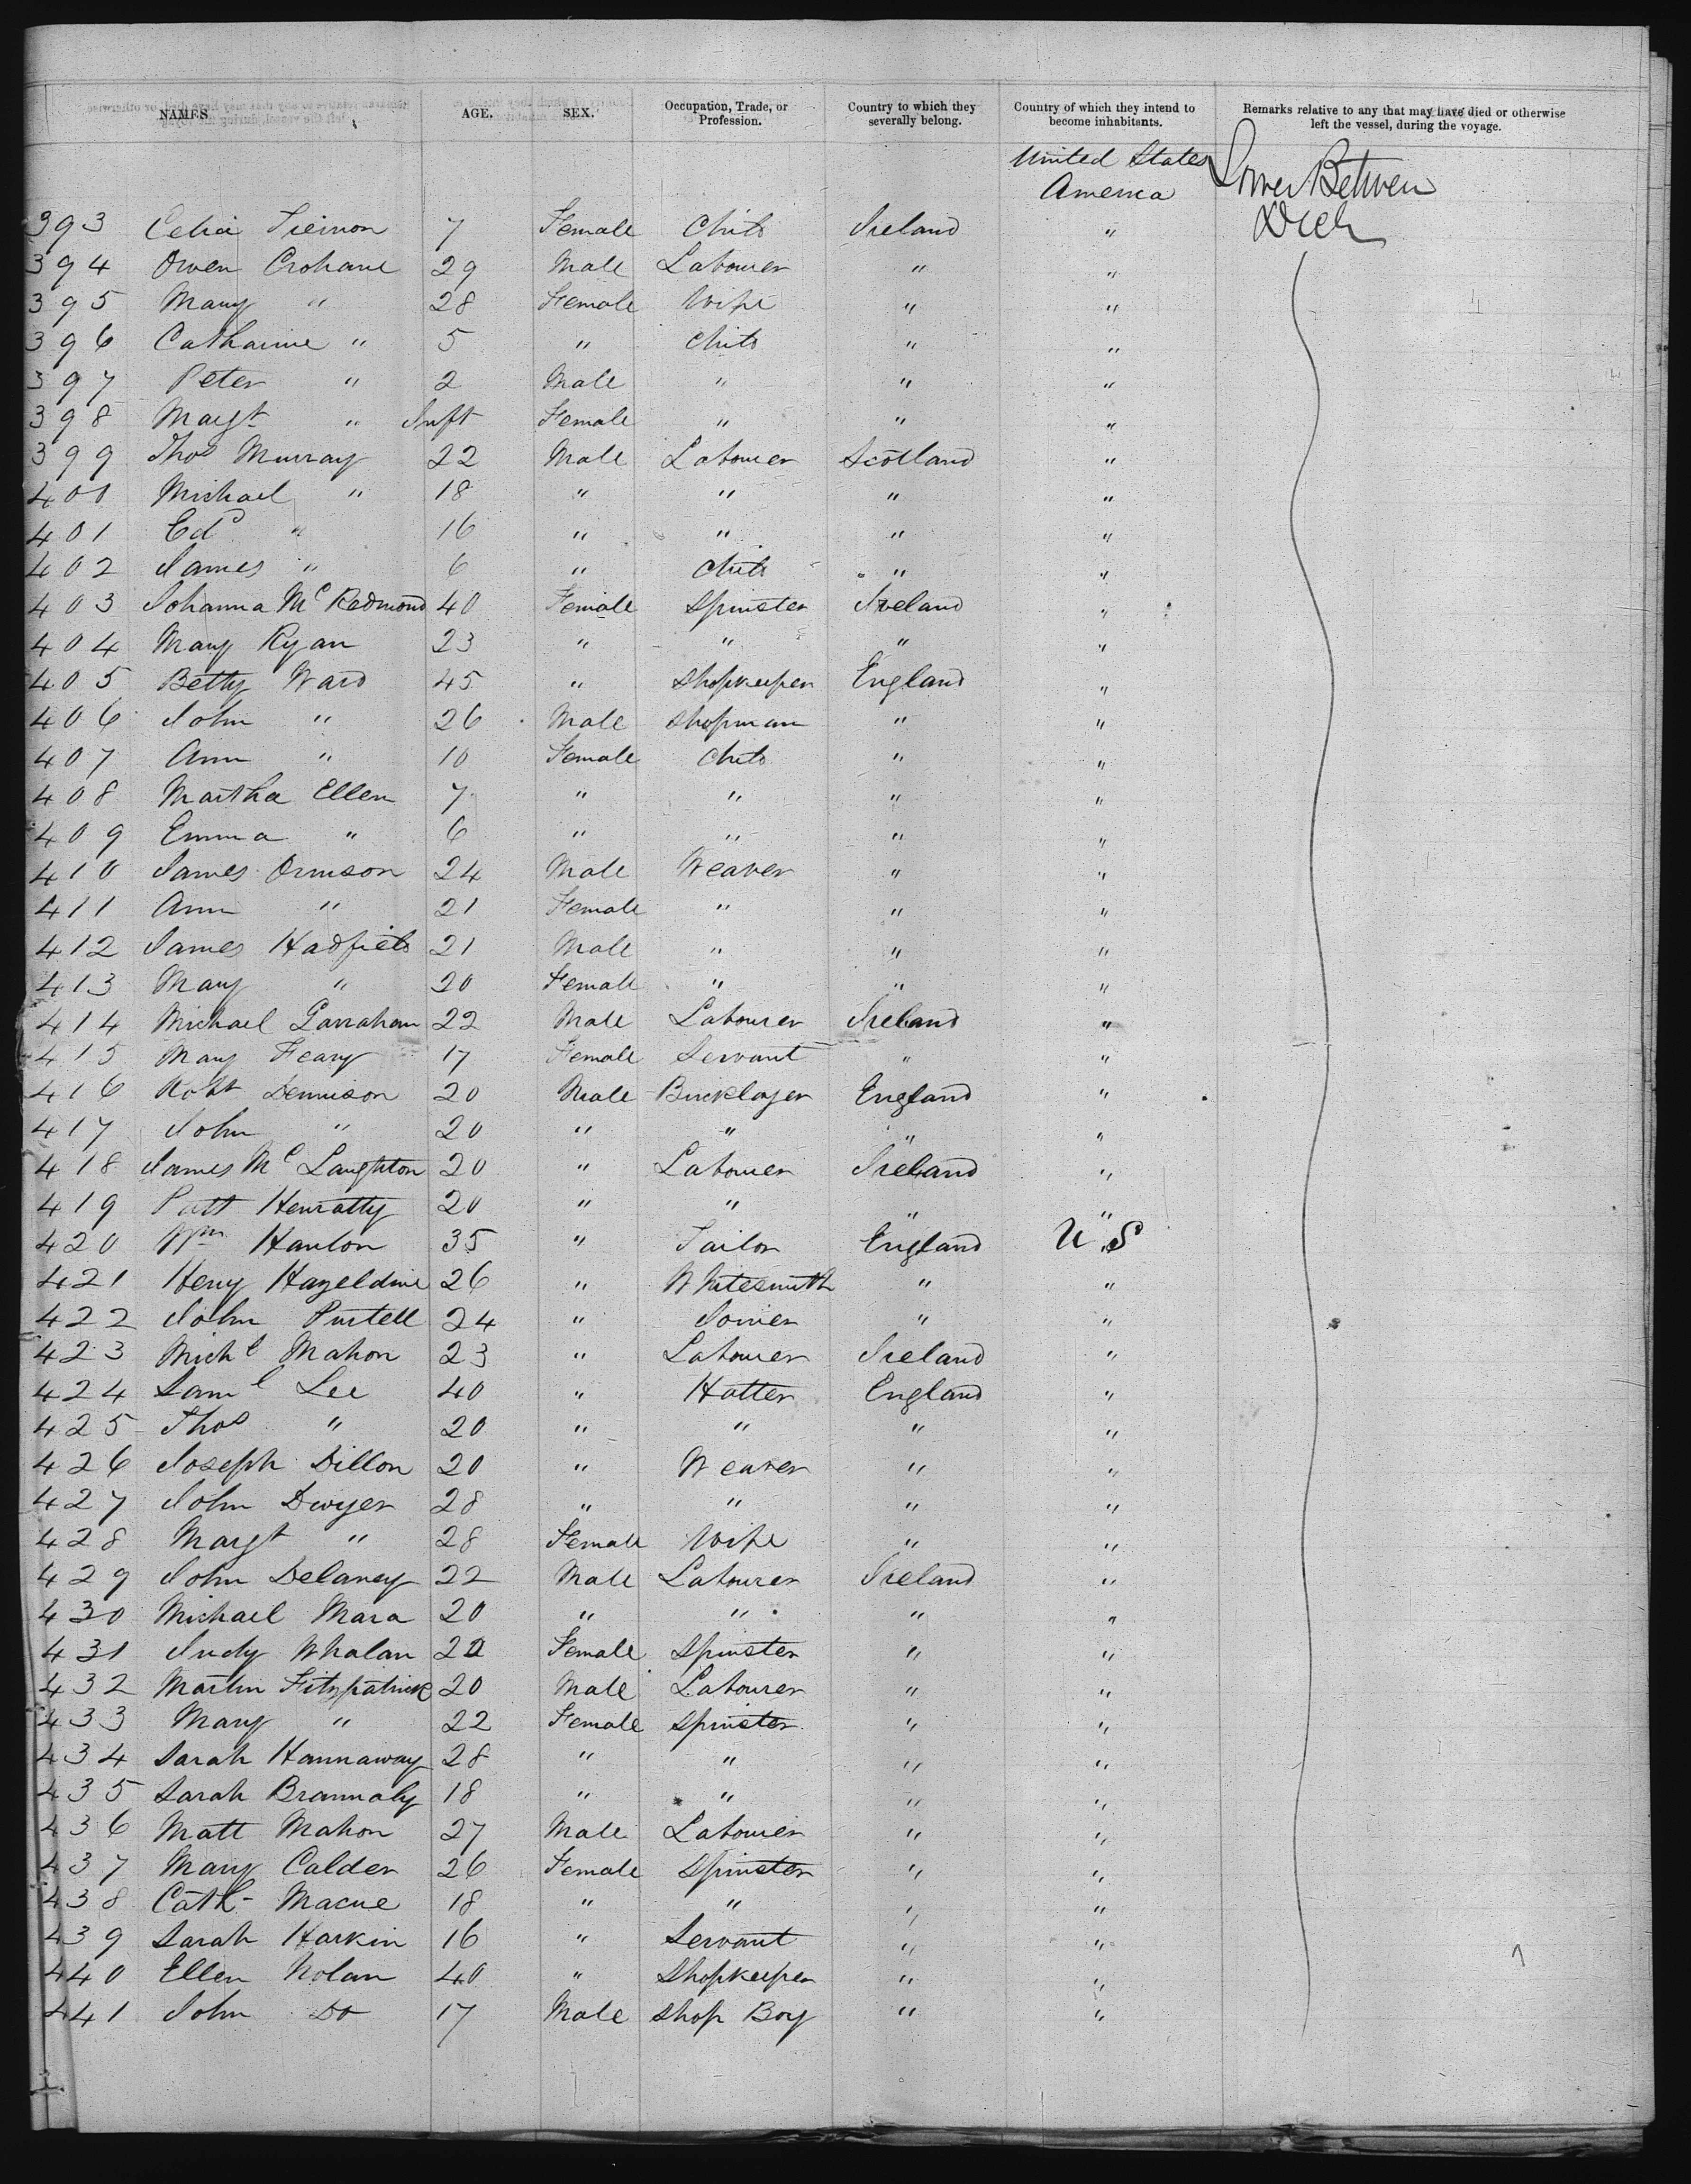 NAMES. AGE. SEX. Occupation, Trade, or Profession. Country to which they severally belong. Country of which they intend to become inhabitants. Remarks relative to any that may have died or otherwise left the vessel, during the voyage.
United States America Lower Between Deck
393 Celia Tiernon 7 Female Child Ireland "
394 Owen Crohane 29 Male Labourer " "
395 Mary " 28 Female Wife " "
396 Catharine " 5 " Child " "
397 Peter " 2 Male " " "
398 Margt " Inft Female " " "
399 Thos Murray 22 Male Labourer Scotland "
400 Michael " 18 " " " "
401 Ed " 16 " " " "
402 James " 6 " Child " "
403 Johanna Mc Redmond 40 Female Spinster Ireland "
404 Mary Ryan 23 " " " "
405 Betty Ward 45 " Shopkeeper England "
406 John " 26 Male Shopman " "
407 Ann " 10 Female Child " "
408 Martha Ellen 7 " " " "
409 Emma " 6 " " " "
410 James Ormson 24 Male Weaver " "
411 Ann " 21 Female " " "
412 James Hadfield 21 Male " " "
413 Mary " 20 Female " " "
414 Michael Garrahan 22 Male Labourer Ireland "
415 Mary Feary 17 Female Servant " "
416 Robt Dennison 20 Male Bricklayer England "
417 John " 20 " " " "
418 James Mc Laughton 20 " Labourer Ireland "
419 Patt Henratty 20 " " " "
420 Wm Hanlon 35 " Tailor England U S "
421 Henry Hazeldine 26 " Whitesmith " "
422 John Purtell 24 " Joiner " "
423 Michl Mahon 23 " Labourer Ireland "
424 Saml Lee 40 " Hatter England "
425 Thos " 20 " " " "
426 Joseph Dillon 20 " Weaver " "
427 John Dwyer 28 " " " "
428 Margt " 28 Female Wife " "
429 John Delaney 22 Male Labourer Ireland "
430 Michael Mara 20 " " " "
431 Judy Whalan 22 Female Spinster " "
432 Martin Fitzpatrick 20 Male Labourer " "
433 Mary " 22 Female Spinster " "
434 Sarah Hannaway 28 " " " "
435 Sarah Brannaly 18 " " " "
436 Matt Mahon 27 Male Labourer " "
437 Mary Calder 26 Female Spinster " "
438 Cath Macue 18 " " " "
439 Sarah Harkin 16 " Servant " "
440 Ellen Nolan 40 " Shopkeeper " "
441 John Do 17 Male Shop Boy " "